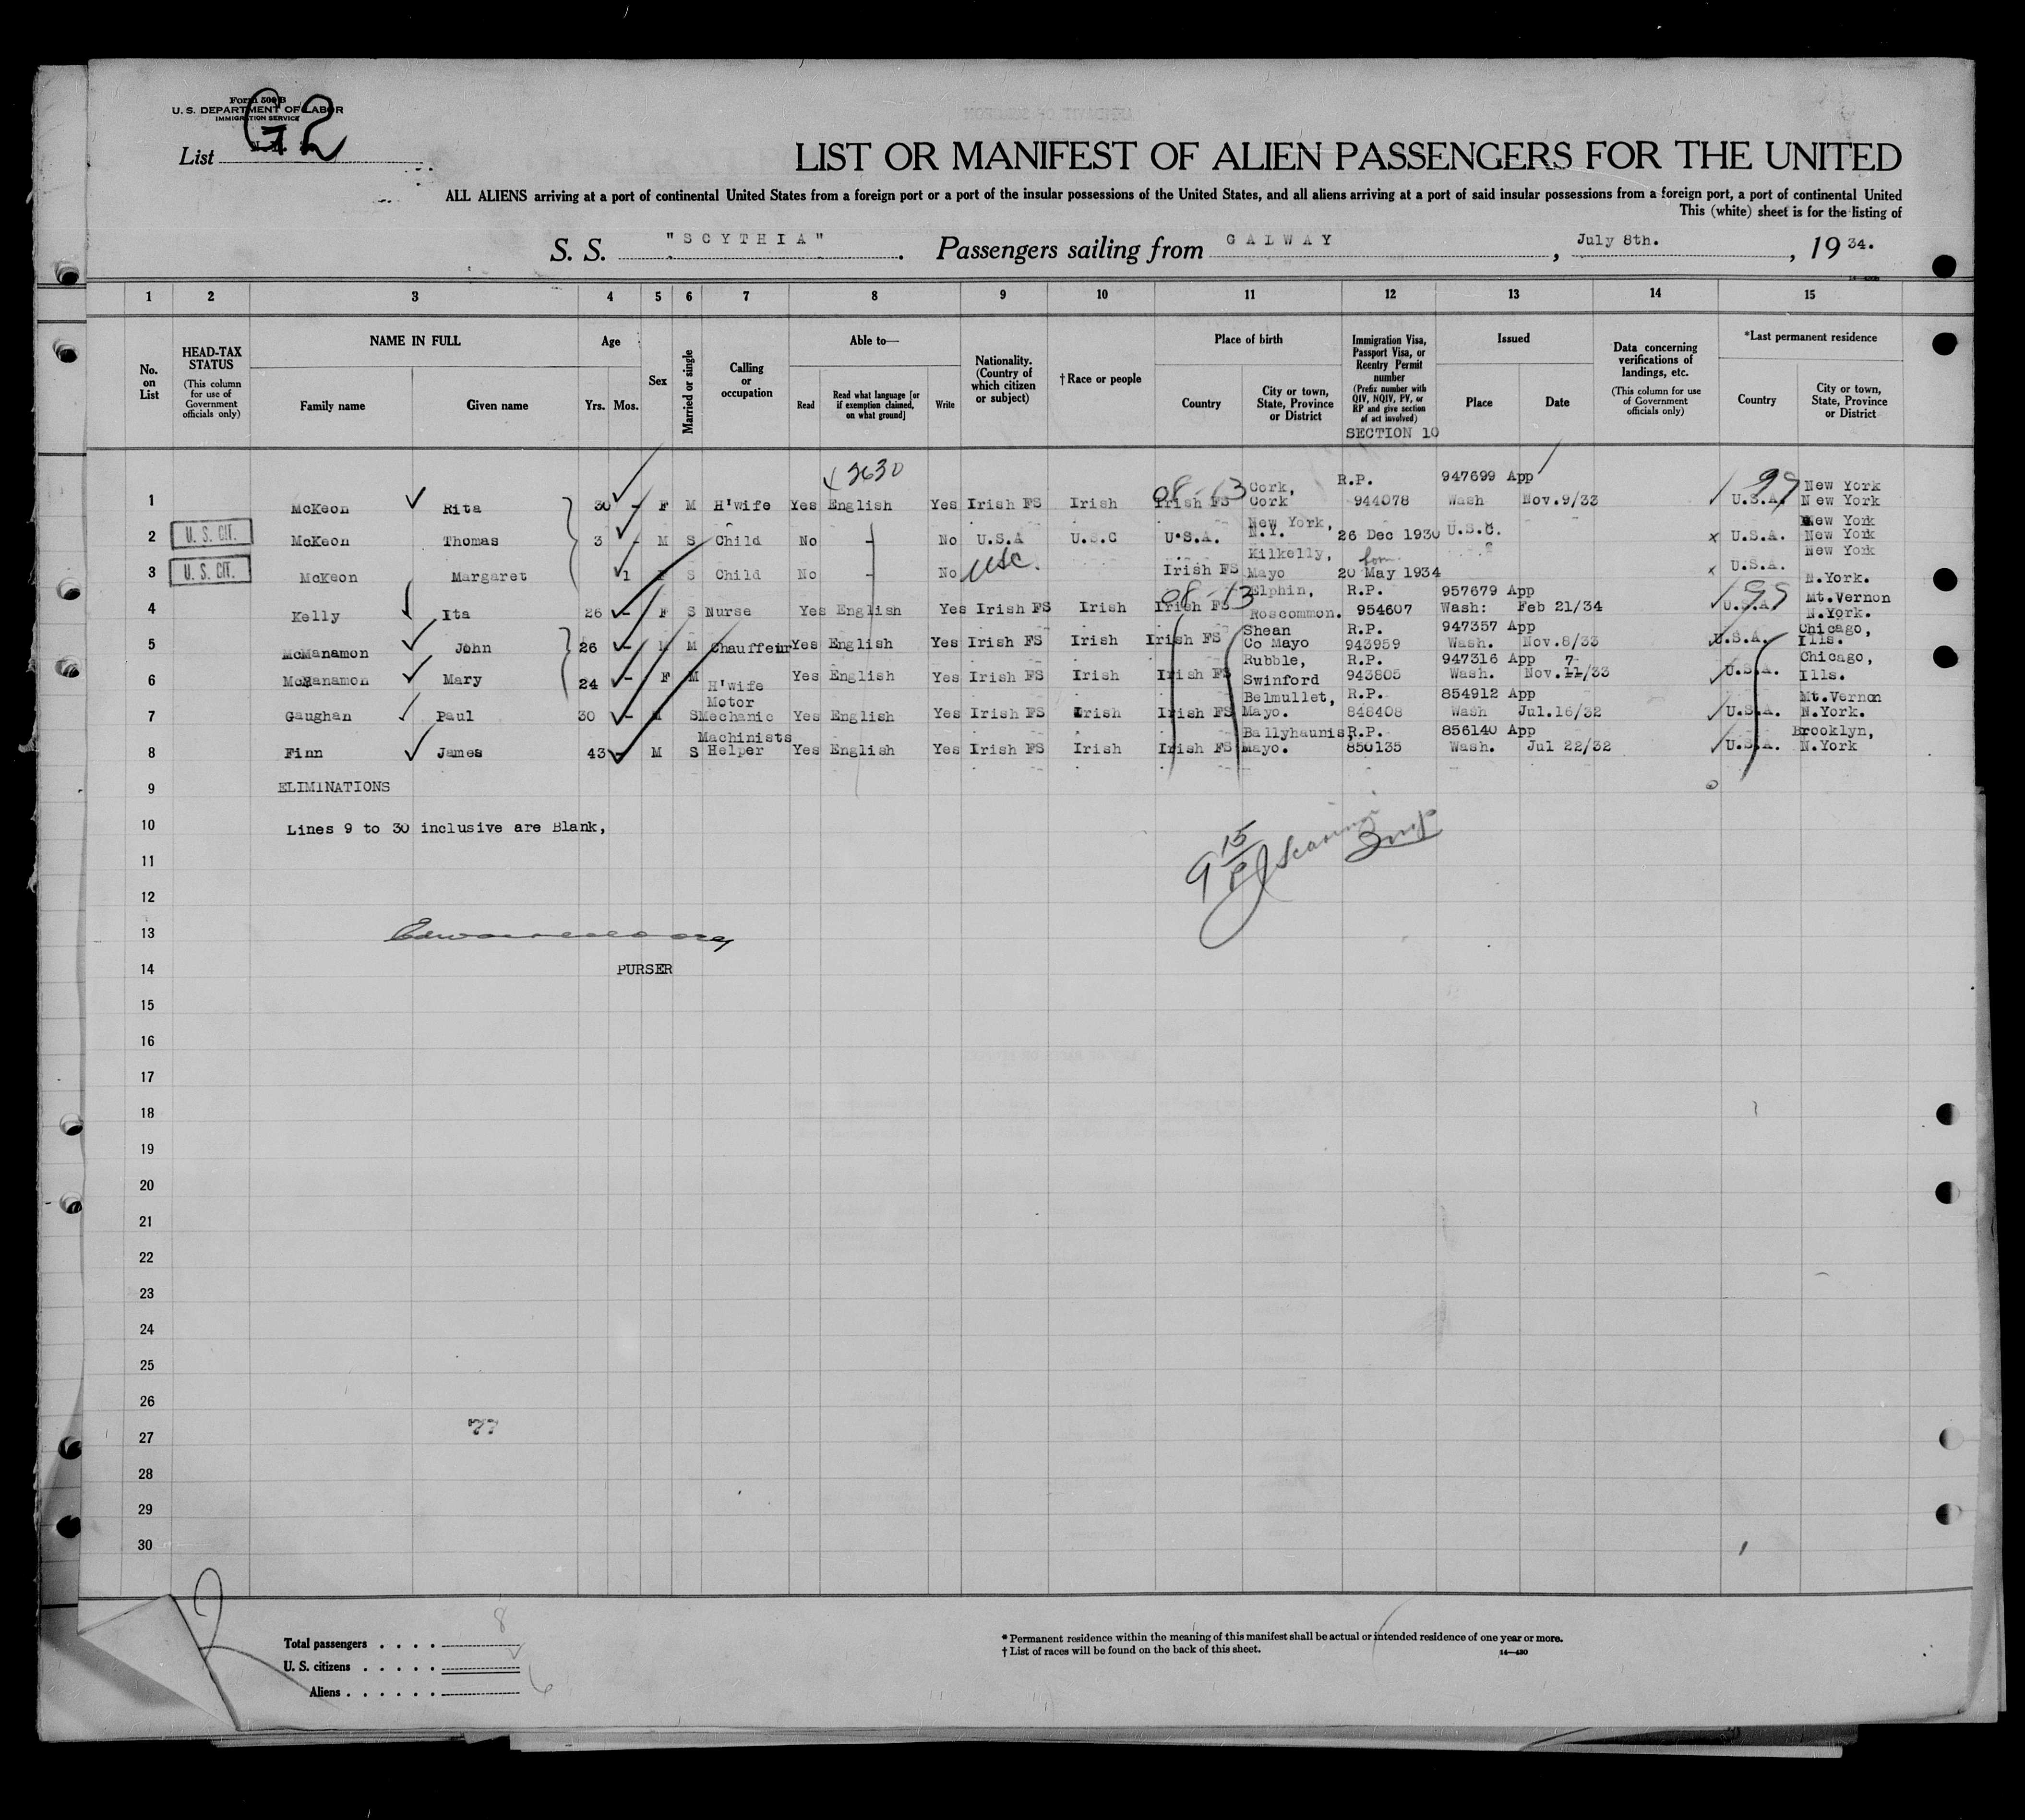 Form 500 B
U. S. DEPARTMENT OF LABOR
IMMIGRATION SERVICE
List G2
LIST OR MANIFEST OF ALIEN PASSENGERS FOR THE UNITED
ALL ALIENS arriving at a port of continental United States from a foreign port or a port of the insular possessions of the United States, and all aliens arriving at a port of said insular possessions from a foreign port, a port of continental United
This (white) sheet is for the listing of
S. S. "SCYTHIA". Passengers sailing from GALWAY, July 8th., 19 34.
1 2 3 4 5 6 7 8 9 10 11 12 13 14 15
No. on List
HEAD-TAX STATUS (This column for use of Government officials only)
NAME IN FULL Family name Given name
Age Yrs. Mos.
Sex
Married or single
Calling or occupation
Able to— Read Read what language [or if exemption claimed, on what ground] Write
Nationality. (Country of which citizen or subject)
†Race or people
Place of birth Country City or town, State, Province or District
Immigration Visa, Passport Visa, or Reentry Permit number (Prefix number with QIV, NQIV, PV, or RP and give section of act involved)
SECTION 10
Issued Place Date
Data concerning verifications of landings, etc. (This column for use of Government officials only)
*Last permanent residence Country City or town, State, Province or District
2630
1 McKeon Rita 30 - F M H'wife Yes English Yes Irish FS Irish Irish FS 08-13 Cork, Cork R.P. 944078 947699 App Wash Nov.9/33 U.S.A. 99 New York New York
2 U. S. CIT. McKeon Thomas 3 - M S Child No - No U.S.A U.S.C U.S.A. New York, N.Y. 26 Dec 1930 U.S.C. U.S.A. New York New York
3 U. S. CIT. McKeon Margaret 1 F S Child No - No USC. Irish FS Kilkelly, Mayo born 20 May 1934 U.S.A. New York N.York.
4 Kelly Ita 26 - F S Nurse Yes English Yes Irish FS Irish Irish FS 08-13 Elphin, Roscommon. R.P. 954607 957679 App Wash: Feb 21/34 U.S.A. 99 Mt.Vernon N.York.
5 McManamon John 26 - M M Chauffeur Yes English Yes Irish FS Irish Irish FS Shean Co Mayo R.P. 943959 947357 App Wash. Nov.8/33 U.S.A. Chicago, Ills.
6 McManamon Mary 24 - F M H'wife Yes English Yes Irish FS Irish Irish FS Rubble, Swinford R.P. 943805 947316 App Wash. Nov.11/33 7 U.S.A. Chicago, Ills.
7 Gaughan Paul 30 - M S Motor Mechanic Yes English Yes Irish FS Irish Irish FS Belmullet, Mayo. R.P. 848408 854912 App Wash Jul.16/32 U.S.A. Mt.Vernon N.York.
8 Finn James 43 - M S Machinists Helper Yes English Yes Irish FS Irish Irish FS Ballyhaunis, Mayo. R.P. 850135 856140 App Wash. Jul 22/32 U.S.A. Brooklyn, N.York
9 ELIMINATIONS
10 Lines 9 to 30 inclusive are Blank,
11
12
13
14 PURSER
15
16
17
18
19
20
21
22
23
24
25
26
27 77
28
29
30
Total passengers . . . . 8
U. S. citizens . . . . . 2
Aliens . . . . . . 6
* Permanent residence within the meaning of this manifest shall be actual or intended residence of one year or more.
† List of races will be found on the back of this sheet.
14—430